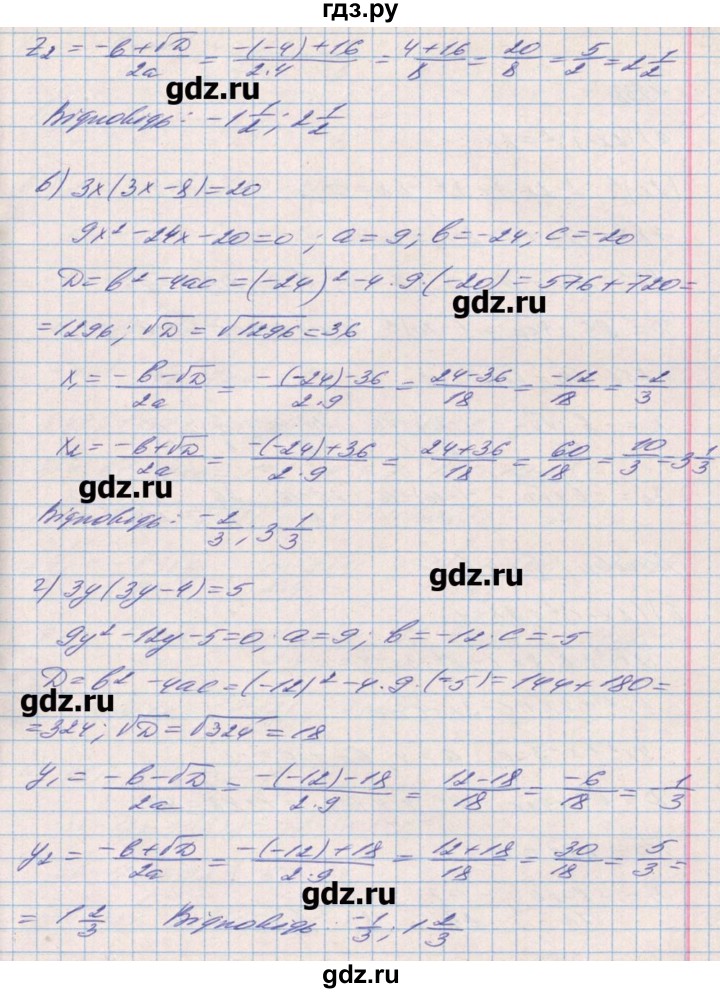 гдз.ру
z₂ = (-b+√D)/2a = (-(-4)+16)/(2·4) = (4+16)/8 = 20/8 = 5/2 = 2 1/2
gdz.ru
Відповідь: -1 1/2; 2 1/2
в) 3x(3x-8)=20
9x²-24x-20=0; a=9; b=-24; c=-20
D=b²-4ac=(-24)²-4·9·(-20)=576+720=
gdz.ru
=1296; √D=√1296=36
x₁ = (-b-√D)/2a = (-(-24)-36)/(2·9) = (24-36)/18 = -12/18 = -2/3
x₂ = (-b+√D)/2a = (-(-24)+36)/(2·9) = (24+36)/18 = 60/18 = 10/3 = 3 1/3
gdz.ru
Відповідь: -2/3; 3 1/3
gdz.ru
г) 3y(3y-4)=5
9y²-12y-5=0; a=9; b=-12; c=-5
D=b²-4ac=(-12)²-4·9·(-5)=144+180=
gdz.ru
=324; √D=√324=18
y₁ = (-b-√D)/2a = (-(-12)-18)/(2·9) = (12-18)/18 = -6/18 = -1/3
y₂ = (-b+√D)/2a = (-(-12)+18)/(2·9) = (12+18)/18 = 30/18 = 5/3 =
gdz.ru
= 1 2/3 Відповідь: -1/3; 1 2/3
gdz.ru